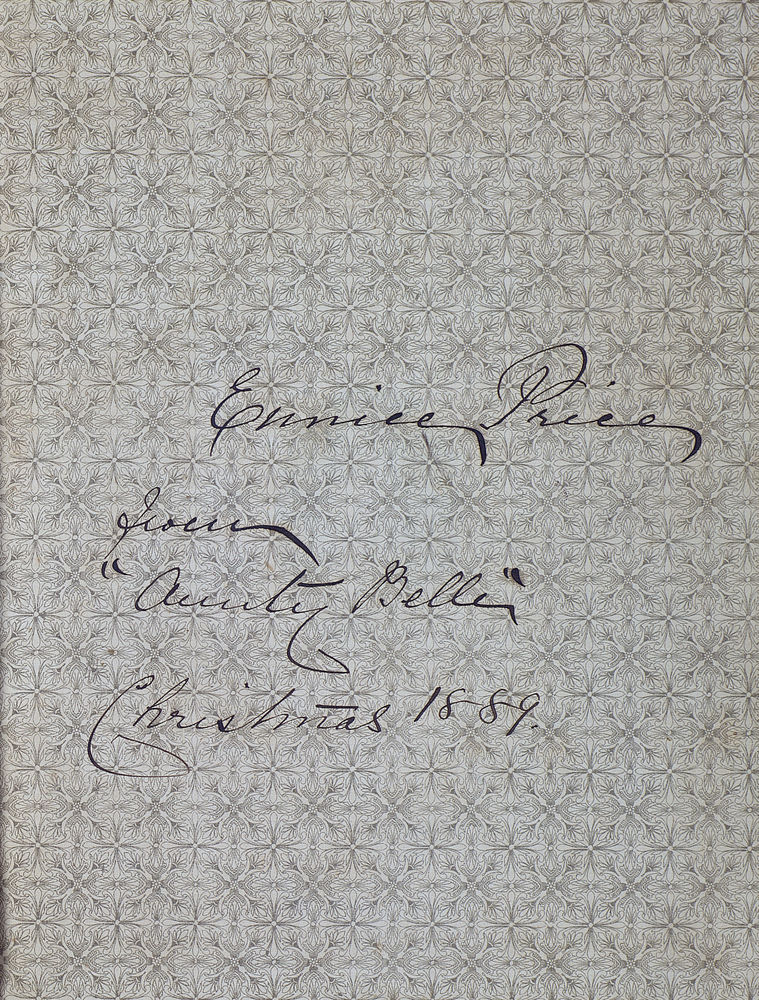 Eunice Price
from
"Aunty Belle"
Christmas 1889.